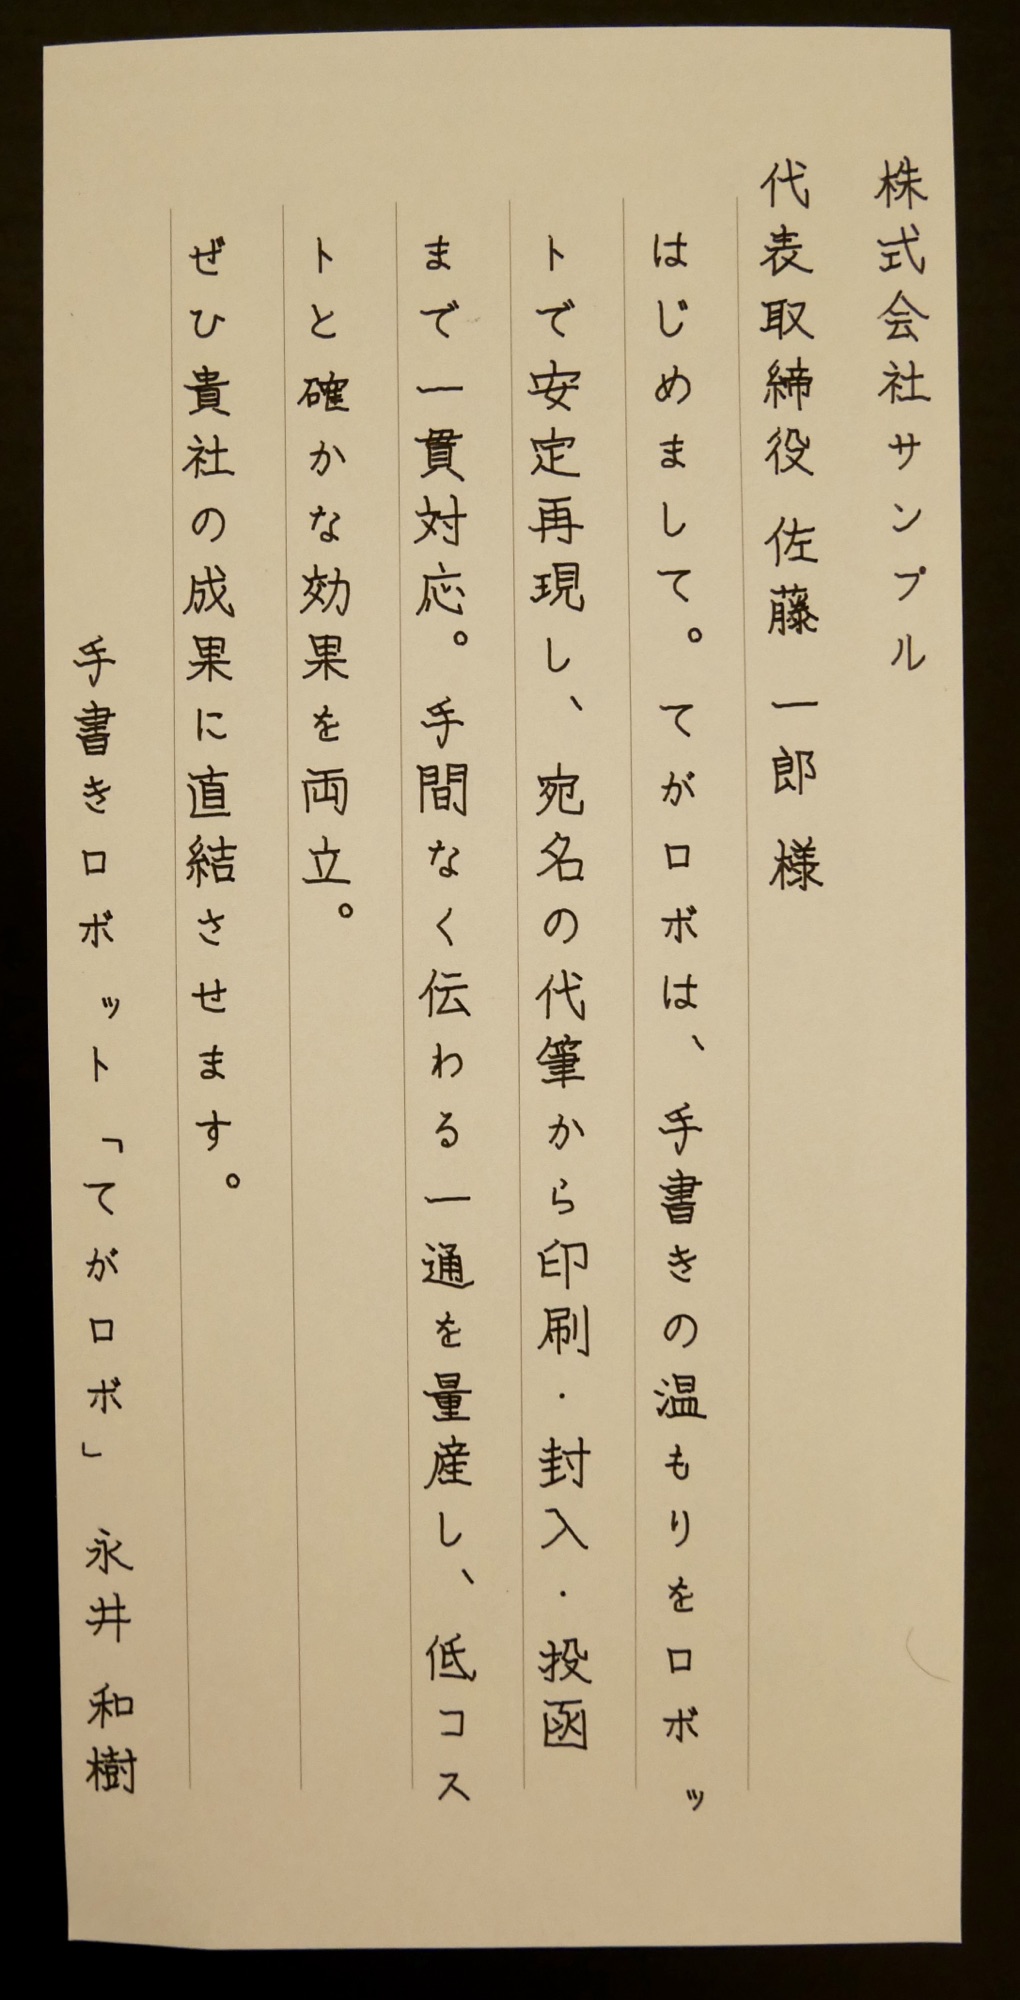 株式会社サンプル
代表取締役 佐藤 一郎 様
はじめまして。てがロボは、手書きの温もりをロボッ
トで安定再現し、宛名の代筆から印刷・封入・投函
まで一貫対応。手間なく伝わる一通を量産し、低コス
トと確かな効果を両立。
ぜひ貴社の成果に直結させます。
手書きロボット「てがロボ」 永井 和樹